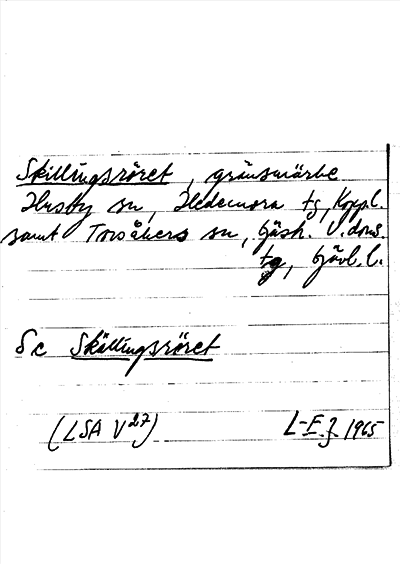 Skillingsröret, gränsmärke
Husby sn, Hedemora tg, Koppl.
samt Torsåkers sn, Gästr. V. doms.
tg, Gävl. l.
Se Skällingsröret
(LSA V27) L-E. J. 1965